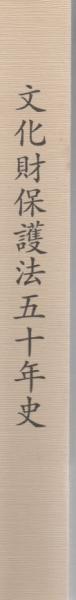 文化財保護法五十年史